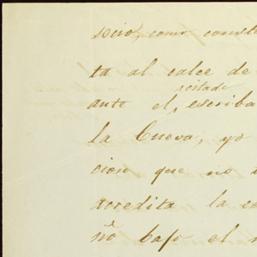 socio, como const
ta al calce de
citado
ante el, escriba
la Cueva, yo
cion que no
acredita la
no bajo el